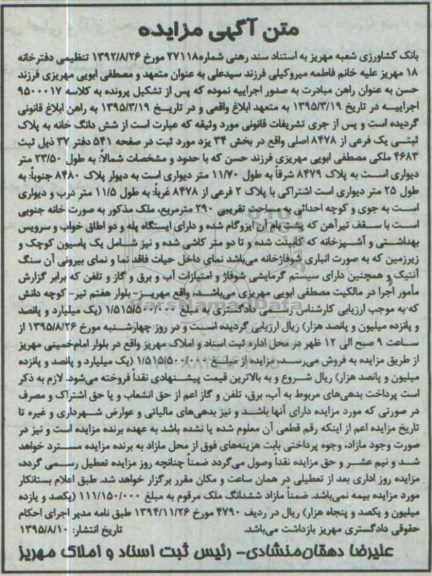 متن آگهی مزایده
بانک کشاورزی شعبه مهریز به استناد سند رهنی شماره۲۷۱۱۸ مورخ ۱۳۹۲/۸/۲۶ تنظیمی دفترخانه
۱۸ مهریز علیه خانم فاطمه میروکیلی فرزند سیدعلی به عنوان متعهد و مصطفی ابویی مهریزی فرزند
حسن به عنوان راهن مبادرت به صدور اجراییه نموده که پس از تشکیل پرونده به کلاسه ۹۵۰۰۰۱۷
اجراییه در تاریخ ۱۳۹۵/۳/۱۹ به متعهد ابلاغ واقعی و در تاریخ ۱۳۹۵/۳/۱۹ به راهن ابلاغ قانونی
گردیده است و پس از جری تشریفات قانونی مورد وثیقه که عبارت است از شش دانگ خانه به پلاک
ثبتی یک فرعی از ۸۴۷۸ اصلی واقع در بخش ۳۴ یزد مورد ثبت در صفحه ۵۴۱ دفتر ۳۷ ذیل ثبت
۴۶۸۳ ملکی مصطفی ابویی مهریزی فرزند حسن که با حدود و مشخصات شمالاً: به طول ۲۳/۵۰ متر
دیواری است به پلاک ۸۴۷۹ شرقاً به طول ۱۱/۷۰ متر دیواری است به دیوار پلاک ۸۴۸۰ جنوباً: به
طول ۲۵ متر دیواری است اشتراکی با پلاک ۲ فرعی از ۸۴۷۸ غرباً: به طول ۱۱/۵ متر درب و دیواری
است به جوی و کوچه احداثی به مساحت تقریبی ۲۹۰ مترمربع، ملک مذکور به صورت خانه جنوبی
است با سقف تیرآهن که پشت بام آن ایزوگام شده و دارای ایستگاه پله و دو اطاق خواب و سرویس
بهداشتی و آشپزخانه که کابینت شده و تا دو متر کاشی شده و نیز شامل یک پاسیون کوچک و
زیرزمین که به صورت انباری شوفاژخانه می‌باشد نمای داخل حیات فاقد نما و نمای بیرونی آن سنگ
آنتیک و همچنین دارای سیستم گرمایشی شوفاژ و امتیازات آب و برق و گاز و تلفن که برابر گزارش
مأمور اجرا در مالکیت مصطفی ابویی مهریزی می‌باشد واقع مهریز- بلوار هفتم تیر- کوچه دانش
که به موجب ارزیابی کارشناس رسمی دادگستری به مبلغ ۱/۵۱۵/۵۰۰/۰۰۰ (یک میلیارد و پانصد
و پانزده میلیون و پانصد هزار) ریال ارزیابی گردیده است و در روز چهارشنبه مورخ ۱۳۹۵/۸/۲۶ از
ساعت ۹ صبح الی ۱۲ ظهر در محل اداره ثبت اسناد و املاک مهریز واقع در بلوار امام‌خمینی مهریز
از طریق مزایده به فروش می‌رسد، مزایده از مبلغ ۱/۵۱۵/۵۰۰/۰۰۰ (یک میلیارد و پانصد و پانزده
میلیون و پانصد هزار) ریال شروع و به بالاترین قیمت پیشنهادی نقداً فروخته می‌شود. لازم به ذکر
است پرداخت بدهی‌های مربوط به آب، برق، تلفن و گاز اعم از حق انشعاب و یا حق اشتراک و مصرف
در صورتی که مورد مزایده دارای آنها باشد و نیز بدهی‌های مالیاتی و عوارض شهرداری و غیره تا
تاریخ مزایده اعم از اینکه رقم قطعی آن معلوم شده یا نشده باشد به عهده برنده مزایده است و نیز در
صورت وجود مازاد، وجوه پرداختی بابت هزینه‌های فوق از محل مازاد به برنده مزایده مسترد خواهد
شد و نیم عشر و حق مزایده نقداً وصول می‌گردد ضمناً چنانچه روز مزایده تعطیل رسمی گردد،
مزایده روز اداری بعد از تعطیلی در همان ساعت و مکان مقرر برگزار خواهد شد. طبق اعلام بستانکار
مورد مزایده بیمه نمی‌باشد. ضمناً مازاد ششدانگ ملک مرقوم به مبلغ ۱۱۱/۱۵۰/۰۰۰ (یکصد و یازده
میلیون و یکصد و پنجاه هزار) ریال در ردیف ۴۷۹۰ مورخ ۱۳۹۴/۱۱/۲۶ طبق نامه مدیر اجرای احکام
حقوقی دادگستری مهریز بازداشت می‌باشد. تاریخ انتشار: ۱۳۹۵/۸/۱۰
علیرضا دهقان‌منشادی- رئیس ثبت اسناد و املاک مهریز